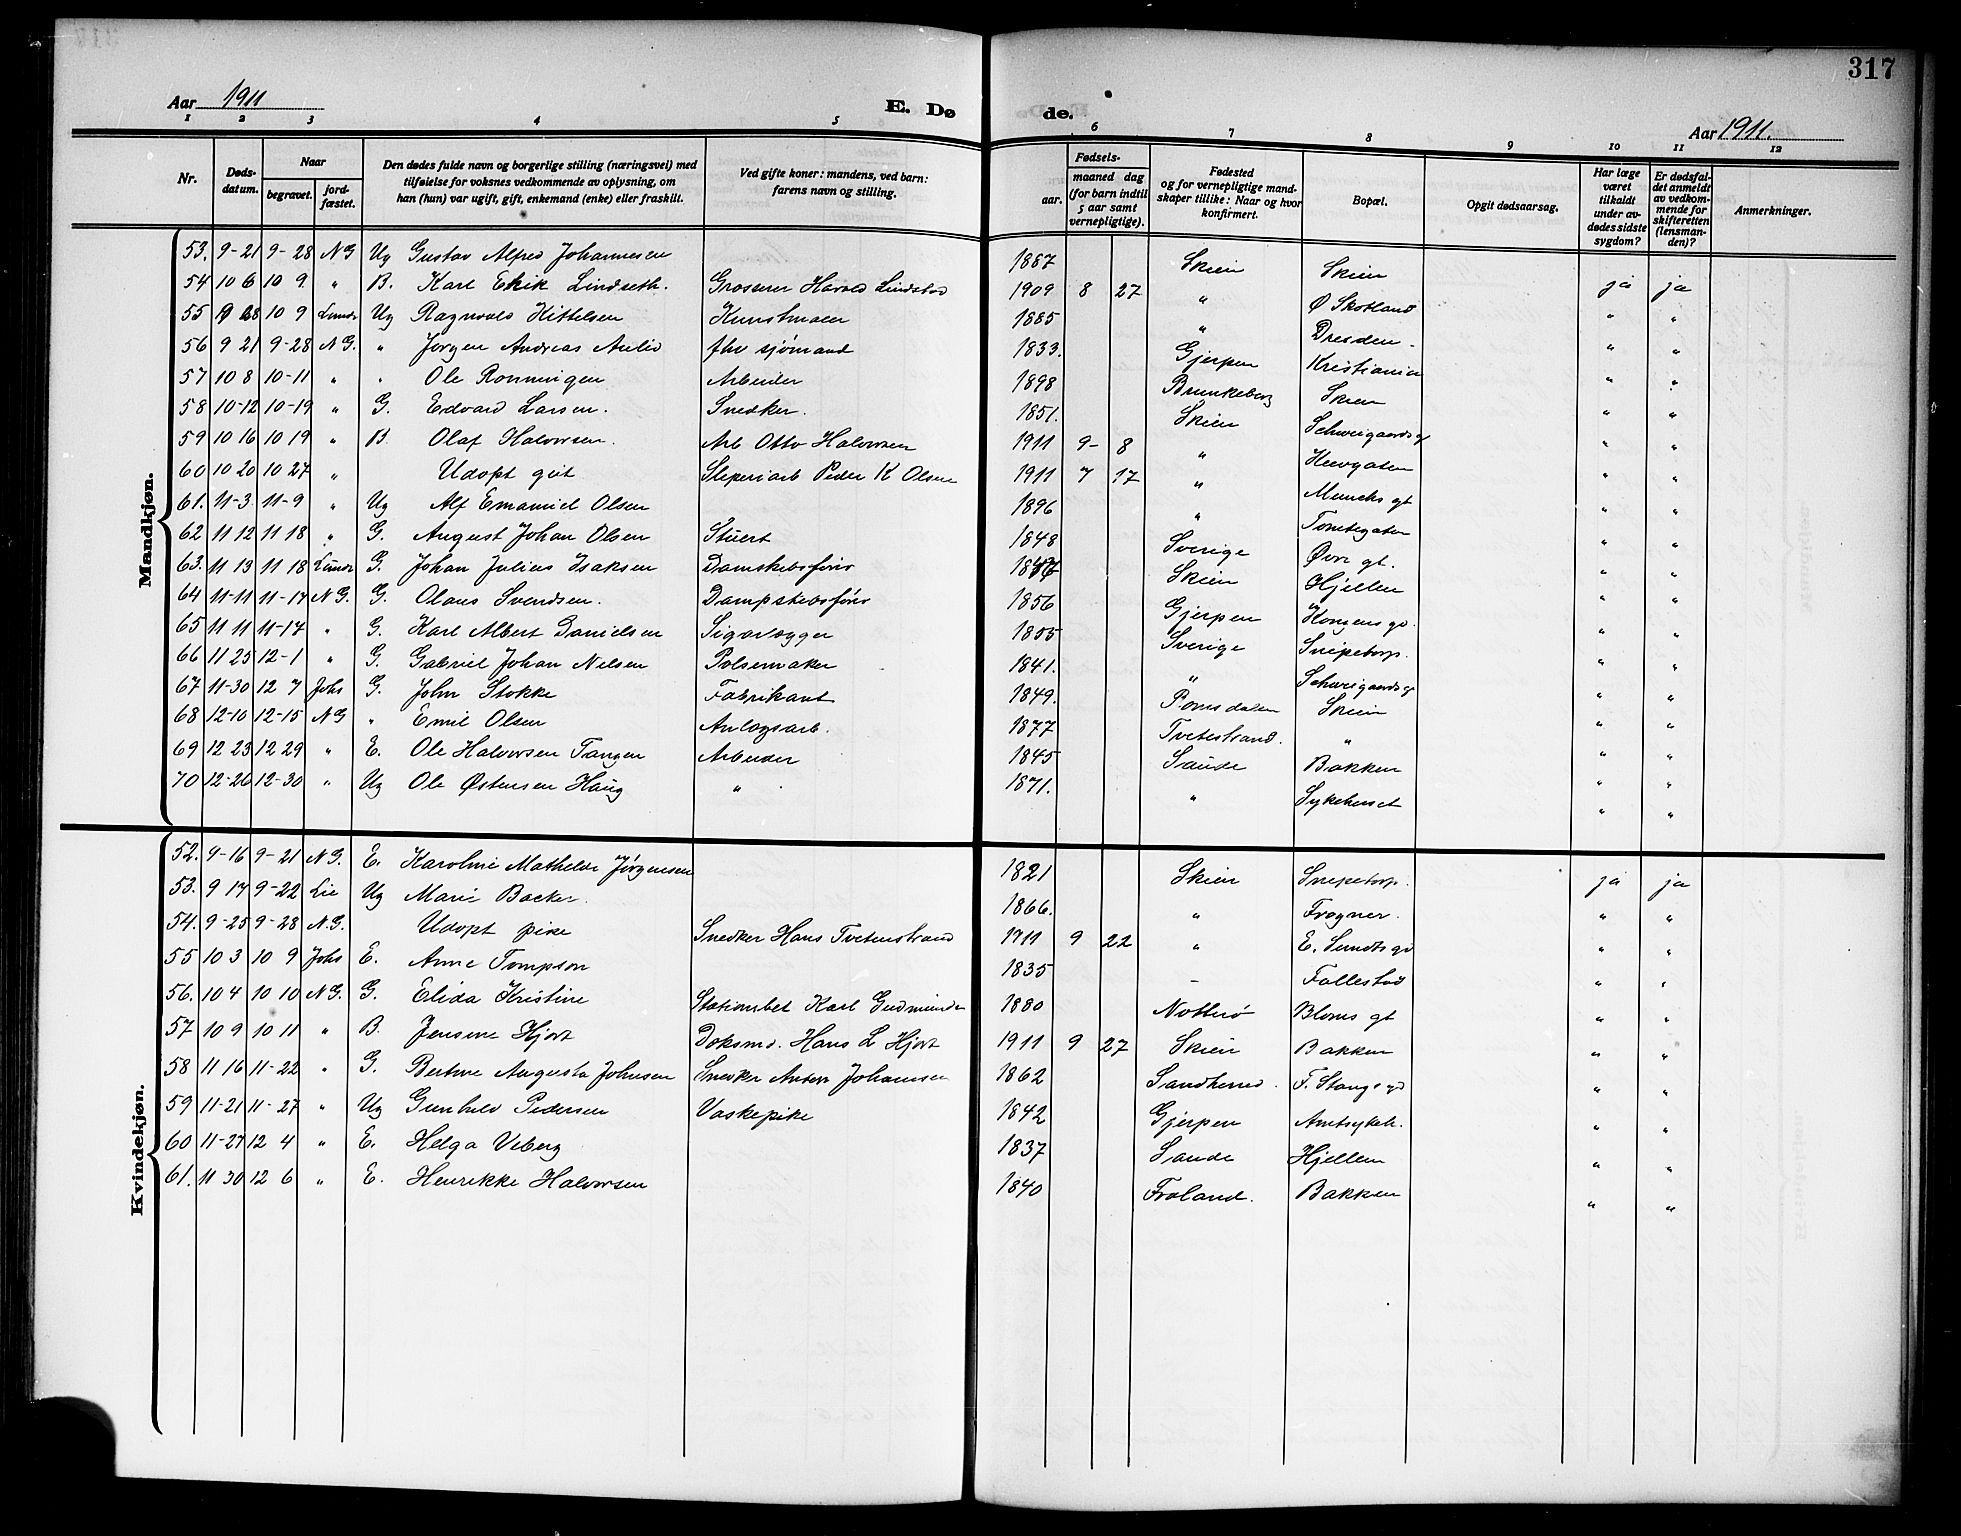 317
Aar 1911
E. Dø de.
Aar 1911.
1 2 3 4 5 6 7 8 9 10 11 12
Nr. Dødsdatum. Naar begravet. jordfæstet. Den dødes fulde navn og borgerlige stilling (næringsvei) med tilføielse for voksnes vedkommende av oplysning, om han (hun) var ugift, gift, enkemand (enke) eller fraskilt. Ved gifte koner: mandens, ved barn: farens navn og stilling. aar. Fødselsmaaned dag (for barn indtil 5 aar samt vernepligtige). Fødested og for vernepligtige mandskaper tillike: Naar og hvor konfirmert. Bopæl. Opgit dødsaarsag. Har læge været tilkaldt under avdødes sidste sygdom? Er dødsfaldet anmeldt av vedkommende for skifteretten (lensmanden)? Anmerkninger.
Mandkjøn.
53. 9-21 9-28 NG Ug Gustav Alfred Johannesen 1887 Skien Skien ja ja
54 10 6 10 9 " B. Karl Erik Lindseth. Grosserer Harald Lindstad 1909 8 27 " Ø Skotland " "
55 10 9 Lunde Ug Ragnvald Kittelsen Kunstmaler 1885 " Dresden. " "
56 9 21 9-28 NG. " Jørgen Andreas Aulid fhv sjømand 1833. Gjerpen Kristiania " "
57 10 8 10-11 " " Ole Rønningen Arbeider 1898 Brunkeberg Skien " "
58 10-12 10-19 " G. Edvard Larsen. Snedker. 1851. Skien Schweigaardsgt " "
59 10 16 10 19 " B. Olaf Halvorsen. Arb Otto Halvorsen 1911 9- 8 " " "
60 10 20 10 27 " Udøpt gut Sliperiarb Peder K Olsen 1911 7 17 " Muncks gt " "
61. 11-3 11-9 " Ug Alf Emanuel Olsen 1896 " Tomtegaten " "
62 11 12 11 18 " G. August Johan Olsen Stuert 1848 Sverige Øvre gt. " "
63. 11 13 11 18 Lunde G. Johan Julius Isaksen Damskebsfører Skien Hjellen " "
64 11-11 11-17 NG. G. Olaus Svendsen. Dampskebsfører 1856 Gjerpen Kongensgd. " "
65 11 11 11-17 " G. Karl Albert Danielsen Sigarlægger 1855 Sverige Snipetorp. " "
66 11 25 12-1 " G. Gabriel Johan Nilsen Pølsemaker 1841. " Schweigaardsgt " "
67 11-30 12 7 Johs G. John Stokke Fabrikant 1849. Romsdalen Skien " "
68 12-10 12-15 NG " Emil Olsen Anlægsarb. 1877 Tvetestrand. " " "
69 12 23 12 29 " E. Ole Halvorsen Tangen Arbeider 1845 Saude Bakken " "
70 12-26 12-30 " Ug Ole Østensen Haug " 1871. " Sykehuset " "
Kvindekjøn.
52. 9-16 9-21 NG. E. Karoline Mathilde Jørgensen 1821 Skien Snipetorp. ja ja
53. 9 17 9-22 Lie Ug Marie Backer. 1866. " Frogner. " "
54. 9-25 9-28 N.G. Udøpt pike Snedker Hans Tvetenstrand 1911 9 22 " E. Sundtsgd " "
55 10 3 10 9 Johs E. Anne Tompson 1835 - Follestad " "
56. 10 4 10 10 NG. G. Elida Kristine Stationsbet Karl Gudmunds 1880 Nøtterø Bloms gt " "
57 10 9 10 11 " B. Jensine Hjort Doksmd. Hans L Hjort 1911 9 27 Skien Bakken " "
58 11 16 11-22 " G. Bertine Augusta Johnsen Snedker Anton Johansen 1862 Sandherred. F. Stangs gd " "
59 11-21 11-27 " Ug Gunhild Pedersen Vaskepike 1842 Gjerpen Amtsykeh. " "
60 11-27 12 4 " E. Helga Viberg 1837 Saude Hjellen " "
61. 11 30 12 6 " E. Henrikke Halvorsen 1840 Froland. Bakken " "